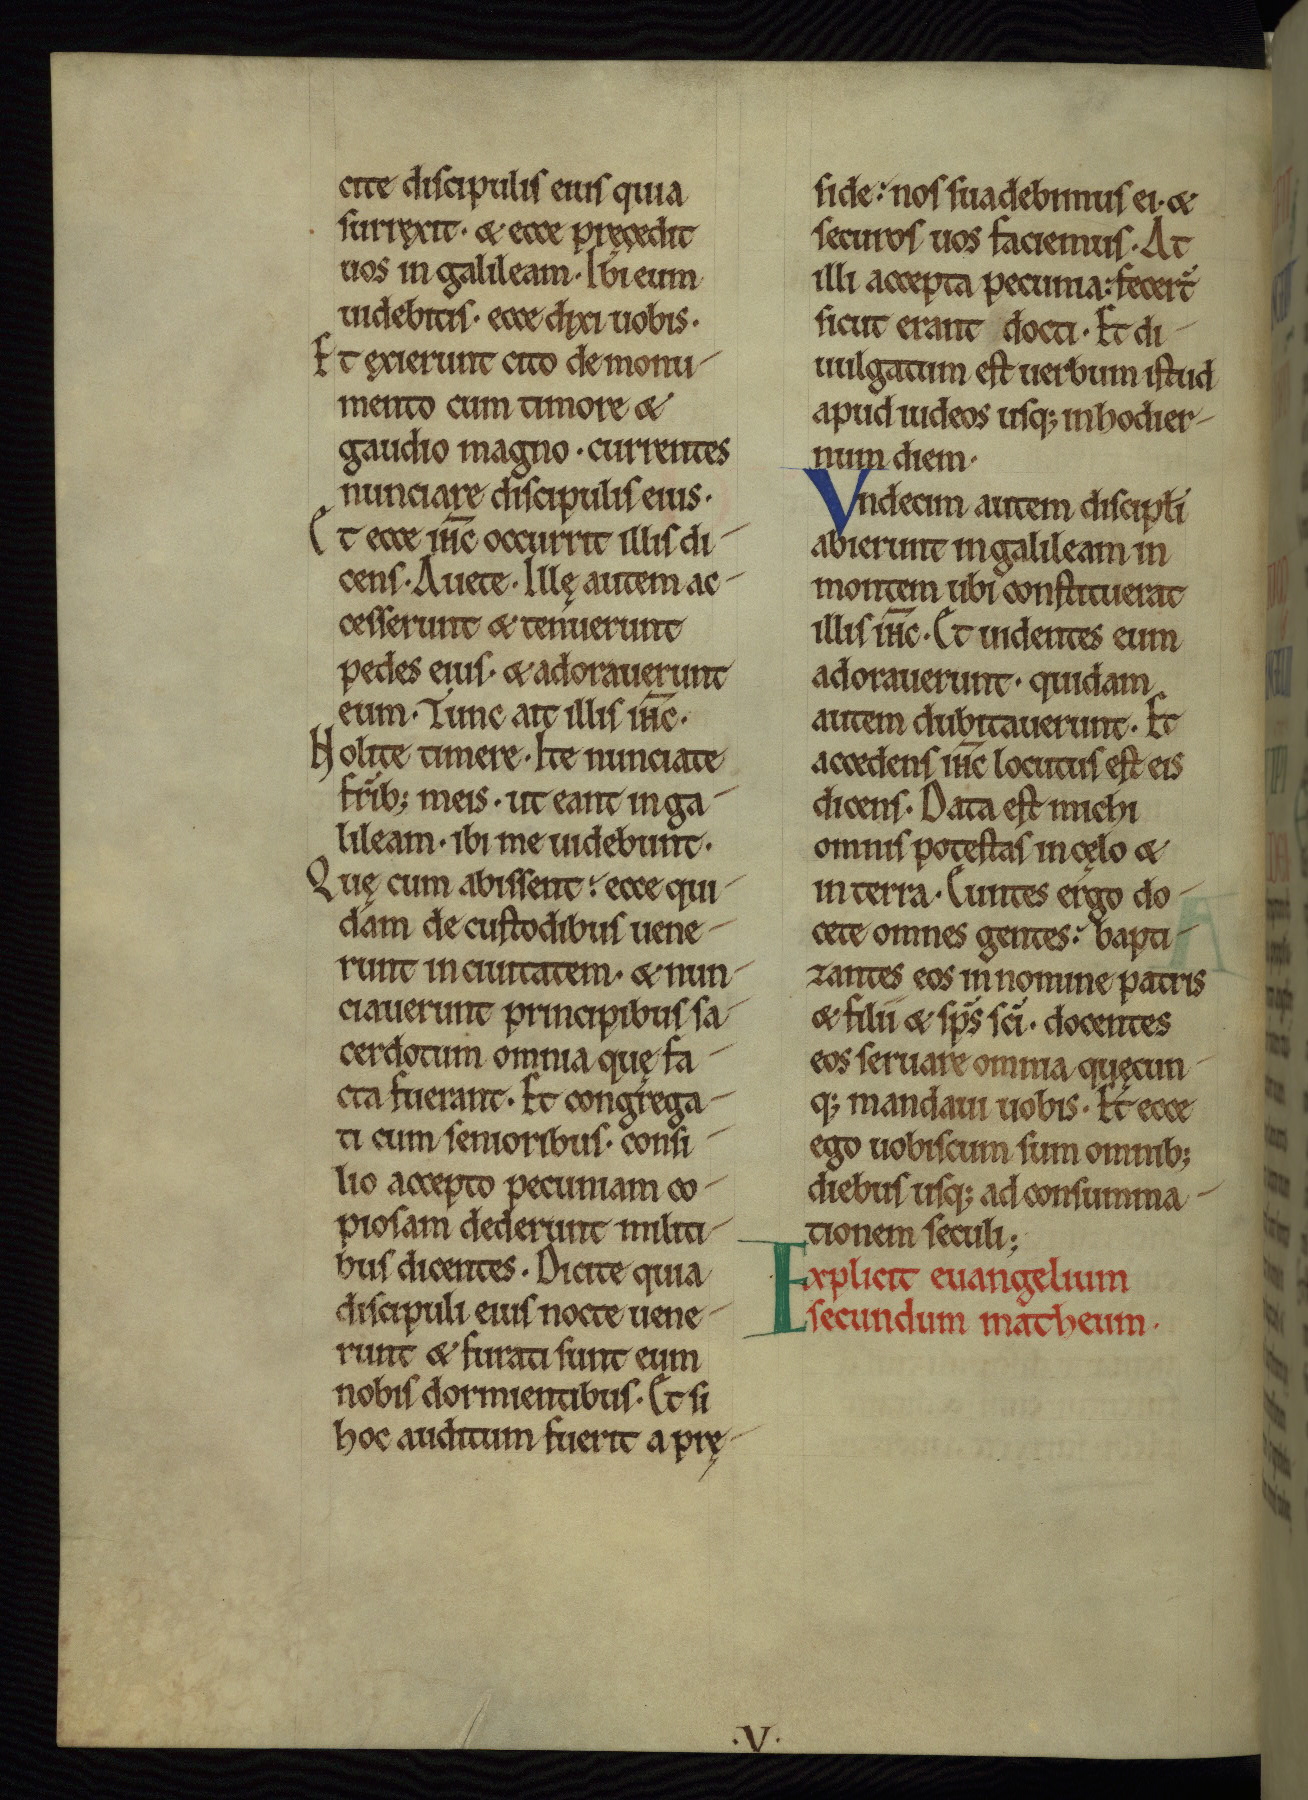 cite discipulis eius quia
surręxit· & ecce pręcedit
uos in galileam· Ibi eum
uidebitis· ecce dixi uobis·
Et exierunt cito de monu-
mento cum timore &
gaudio magno· currentes
nunciare discipulis eius·
Et ecce ih̅c occurrit illis di-
cens· Auete· Illę autem ac-
cesserunt & tenuerunt
pedes eius· & adorauerunt
eum· Tunc ait illis ih̅c·
Nolite timere· Ite nunciate
fr̅ib; meis· ut eant in ga-
lileam· ibi me uidebunt·
Quę cum abissent: ecce qui-
dam de custodibus uene-
runt in ciuitatem· & nun-
ciauerunt principibus sa-
cerdotum omnia quę fa-
cta fuerant· Et congrega-
ti cum senioribus· consi-
lio accepto pecuniam co-
piosam dederunt militi-
bus dicentes· Dicite quia
discipuli eius nocte uene-
runt & furati sunt eum
nobis dormientibus· Et si
hoc auditum fuerit a prę-
side: nos suadebimus ei· &
securos uos faciemus· At
illi accepta pecunia: fecer̅t
sicut erant docti· Et di-
uulgatum est uerbum istud
apud iudeos usq; in hodier-
num diem·
Vndecim autem discipl̅i
abierunt in galileam in
montem ubi constituerat
illis ih̅c· Et uidentes eum
adorauerunt· quidam
autem dubitauerunt· Et
accedens ih̅c locutus est eis
dicens· Data est michi
omnis potestas in cęlo &
in terra· Euntes ergo do-
cete omnes gentes: bapti-
zantes eos in nomine patris
& filii & sp̅s sc̅i· docentes
eos seruare omnia quęcun-
q; mandaui uobis· Et ecce
ego uobiscum sum omnib;
diebus usq; ad consumma-
tionem seculi;
Explicit euangelium
secundum matheum·
·V·